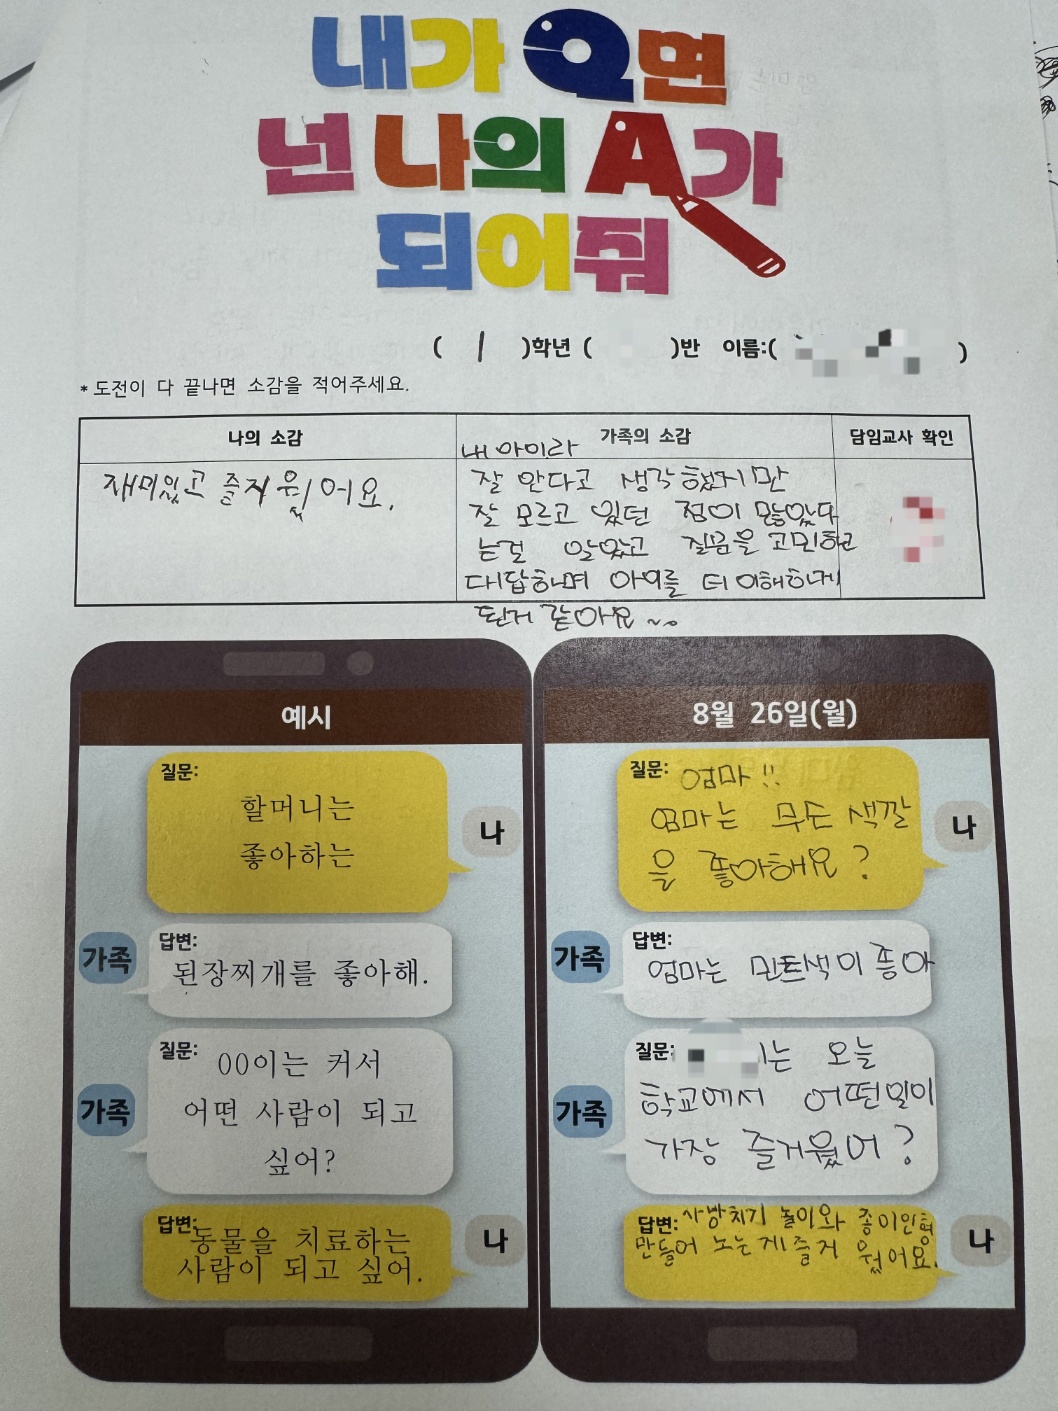 내가 Q면
넌 나의 A가
되어줘
( 1 )학년 ( )반 이름:( )
* 도전이 다 끝나면 소감을 적어주세요.
나의 소감
재미있고 즐거웠어요.
가족의 소감
내 아이라
잘 안다고 생각했지만
잘 모르고 있던 점이 많았다
는걸 알았고 질문을 고민하고
대답하며 아이를 더 이해하게
된거 같아요~。
담임교사 확인
예시
질문:
할머니는
좋아하는
나
가족
답변:
된장찌개를 좋아해.
가족
질문:
00이는 커서
어떤 사람이 되고
싶어?
답변:
동물을 치료하는
사람이 되고 싶어.
나
8월 26일(월)
질문: 엄마!!
엄마는 무슨 색깔
을 좋아해요?
나
가족
답변:
엄마는 민트색이 좋아
가족
질문: 이는 오늘
학교에서 어떤일이
가장 즐거웠어?
답변: 사방치기 놀이와 종이인형
만들어 노는게 즐거웠어요.
나